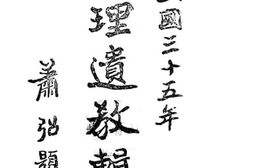 國三十五年
理遺教輯
蕭題